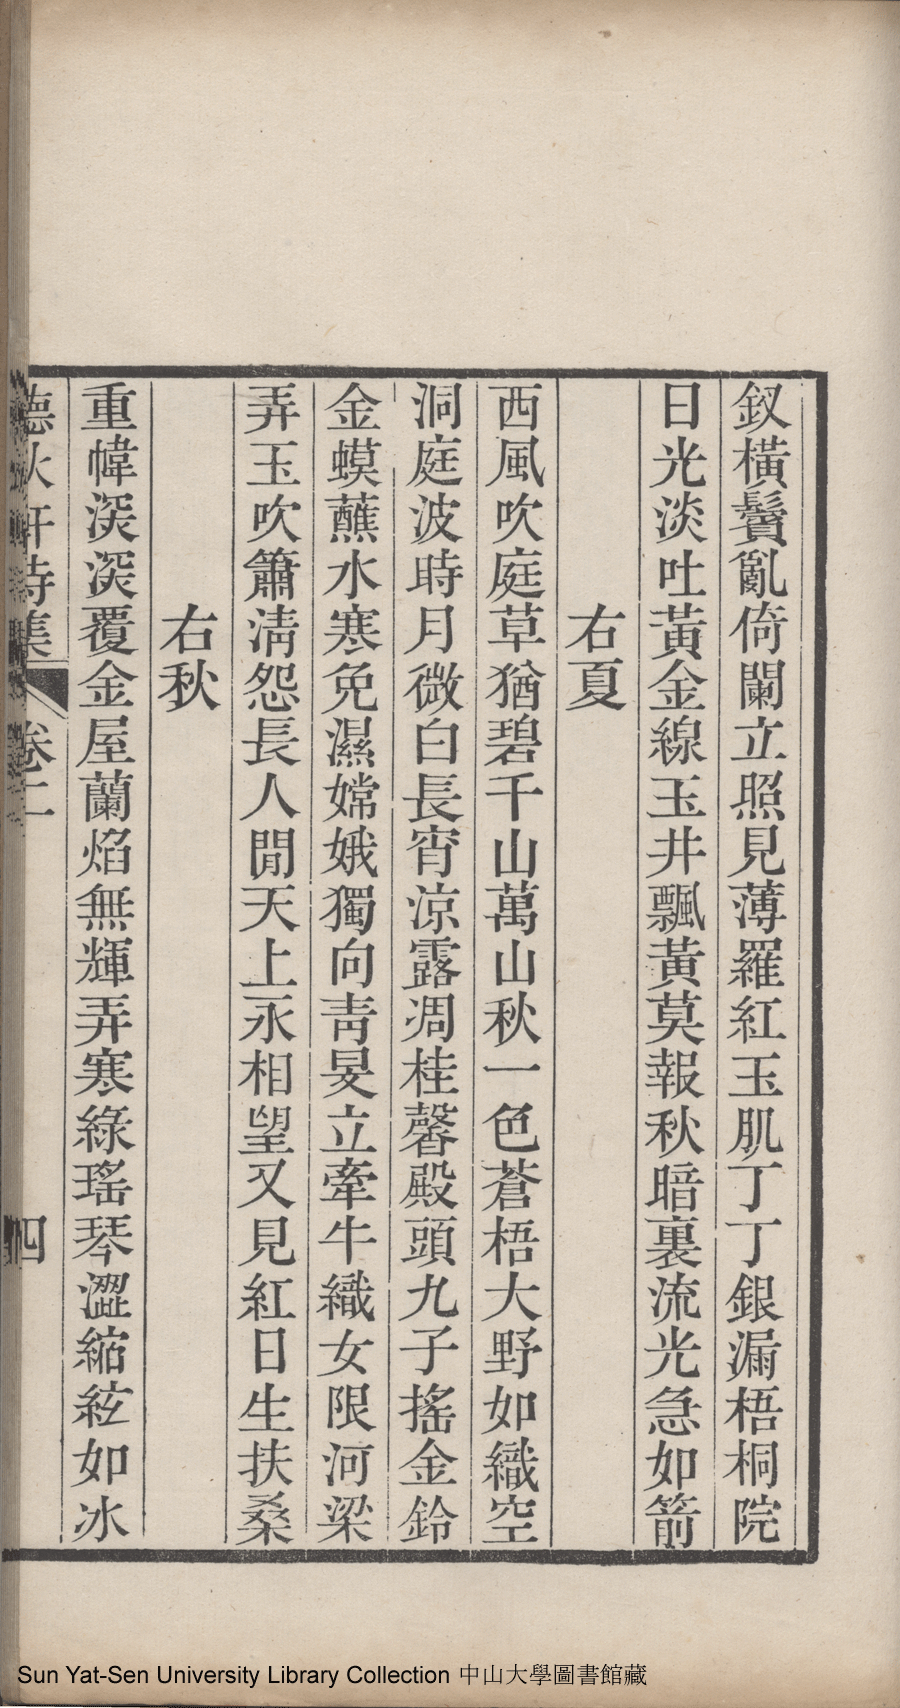 釵橫鬢亂倚闌立照見薄羅紅玉肌丁丁銀漏梧桐院
日光淡吐黃金線玉井飄黃莫報秋暗裏流光急如箭
右夏
西風吹庭草猶碧千山萬山秋一色蒼梧大野如織空
洞庭波時月微白長宵涼露凋桂馨殿頭九子搖金鈴
金蟆蘸水寒免濕嫦娥獨向青旻立牽牛織女限河梁
弄玉吹簫清怨長人閒天上永相望又見紅日生扶桑
右秋
重幃深深覆金屋蘭焰無輝弄寒綠瑤琴澀縮絃如冰
秋軒詩集 卷二 四
Sun Yat-Sen University Library Collection 中山大學圖書館藏